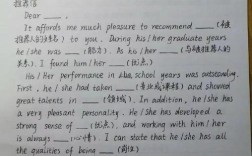 推荐信
Dear ____,
It affords me much pleasure to recommend ____(被
推荐人的姓名) to you. During his/her graduate years
he/she was ____(职务). As his/her ____(与被推荐人的
关系), I found him/her ____(优点).
His/Her performance in school years was outstanding.
First, he/she had taken ____(专业或课程) and showed
great talents in ____(领域). In addition, he/she has
a very pleasant personality. He/She has developed a
strong sense of ____(品质), and working with him/her
is always ____(心情). I can state that he/she has all
the qualities of being ____(岗位)